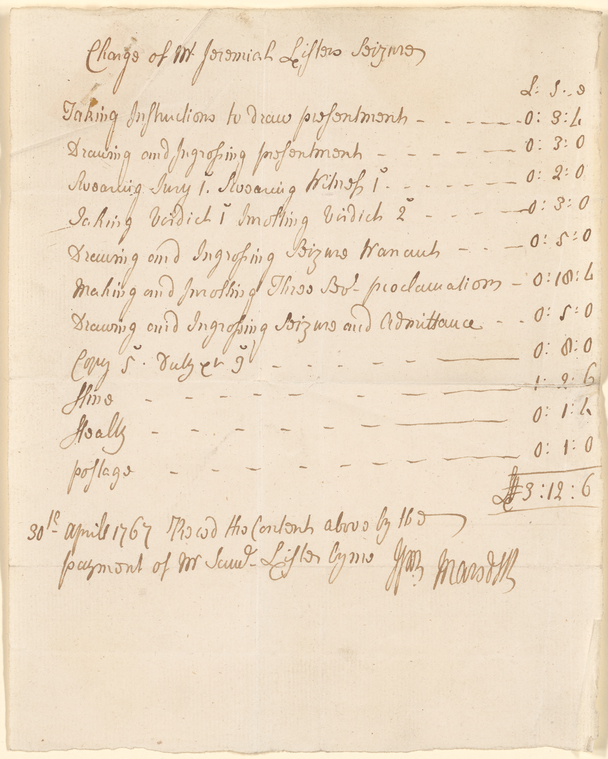 Charge of Mr. Jeremiah Listers Seizure
L: S: D
Taking Instructions to draw presentment - - - - 0: 3: 4
Drawing and Ingrossing presentment - - - - 0: 3: 0
Swearing Jury 1s. Swearing Witness 1s. - - - - 0: 2: 0
Taking Virdict 1s Inrolling Virdict 2s - - - - 0: 3: 0
Drawing and Ingrossing Seizure Warrant - - - 0: 5: 0
Making and Inrolling Three Sevl. proclamations - 0: 18: 4
Drawing and Ingrossing Seizure and Admittance - - 0: 5: 0
Copy 5s. Duty 3s - - - - 0: 8: 0
ffine - - - - - - - 1: 2: 6
ffealty - - - - - - 0: 1: 4
postage - - - - - - - 0: 1: 0
£3: 12: 6
30th April 1767 Recd the Content above by the
payment of Mr Saml. Lister by me Wm Marsdll